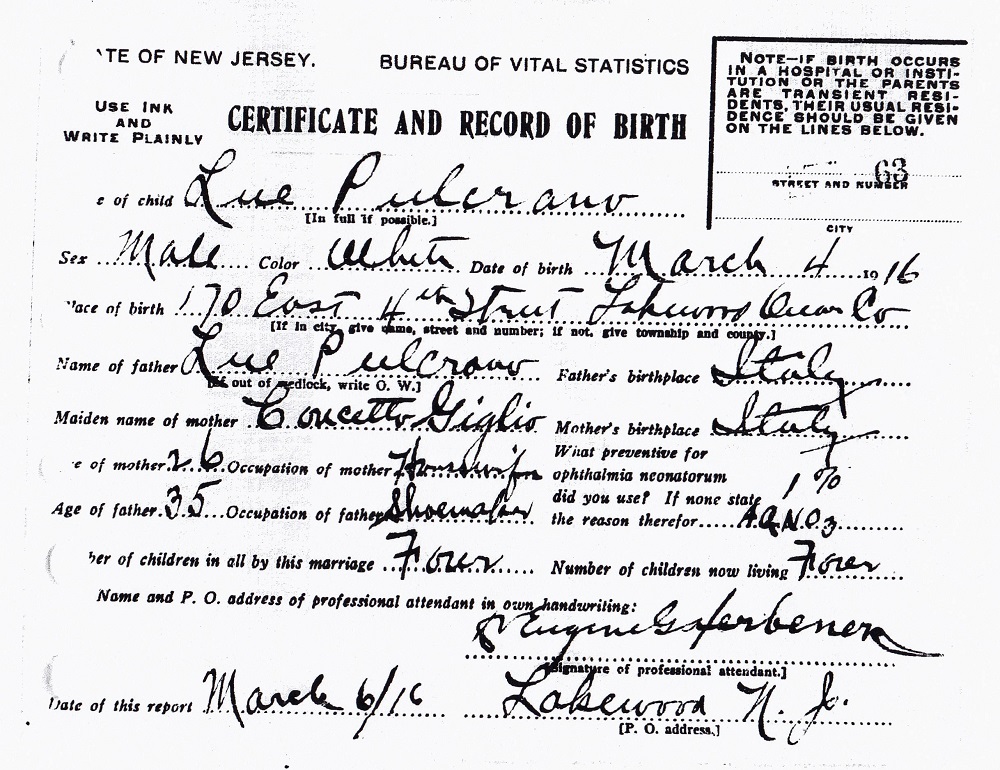 TE OF NEW JERSEY. BUREAU OF VITAL STATISTICS
USE INK
AND
WRITE PLAINLY
CERTIFICATE AND RECORD OF BIRTH
NOTE—IF BIRTH OCCURS
IN A HOSPITAL OR INSTI-
TUTION OR THE PARENTS
ARE TRANSIENT RESI-
DENTS, THEIR USUAL RESI-
DENCE SHOULD BE GIVEN
ON THE LINES BELOW.
63
STREET AND NUMBER
CITY
e of child Lue Pulcrano
[In full if possible.]
Sex Male Color White Date of birth March 4 1916
lace of birth 170 East 4th Street Lakewood Ocean Co
[If in city, give name, street and number; if not, give township and county.]
Name of father Lue Pulcrano Father's birthplace Italy
[If out of wedlock, write O. W.]
Maiden name of mother Concetto Giglio Mother's birthplace Italy
e of mother 26 Occupation of mother Housewife
What preventive for
ophthalmia neonatorum
did you use? If none state
the reason therefor 1% AgNO3
Age of father 35 Occupation of father Shoemaker
ber of children in all by this marriage Four Number of children now living Four
Name and P. O. address of professional attendant in own handwriting:
Eugene G
[Signature of professional attendant.]
Date of this report March 6/16 Lakewood N. J.
[P. O. address.]